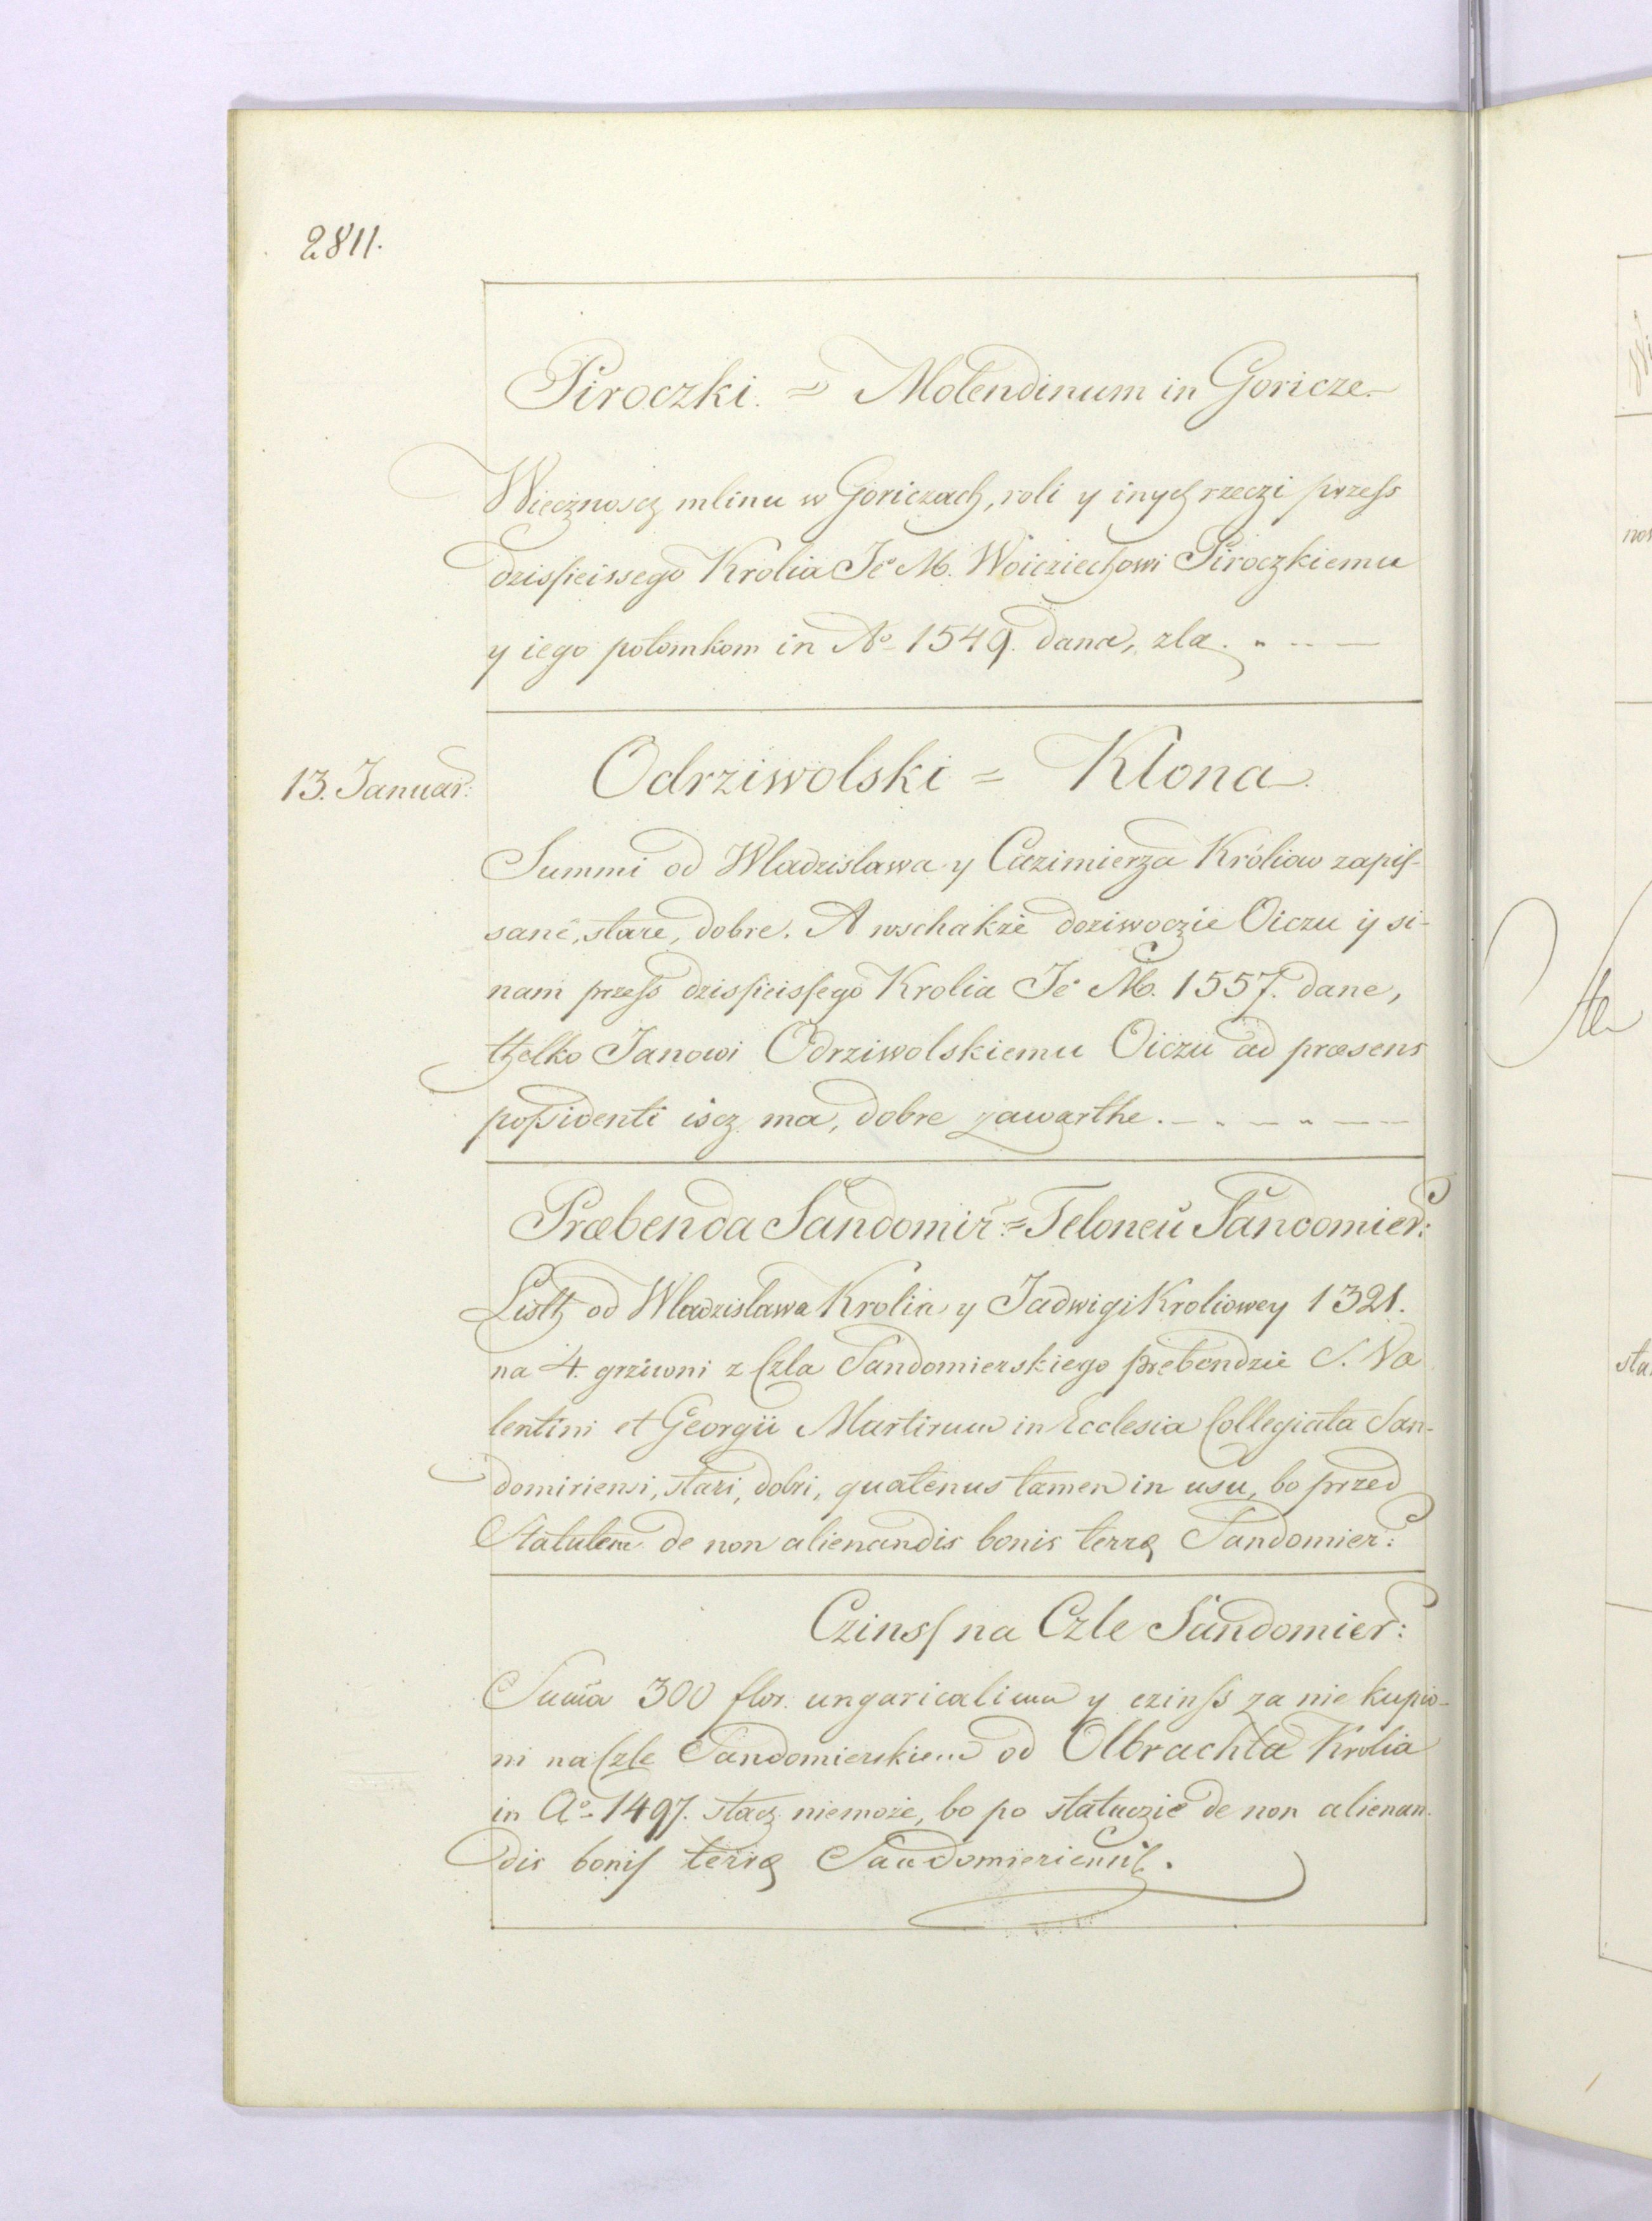 2811.
Piroczki = Molendinum in Goricze
Wiecznoscz mlinu w Goriczach, roli y inych rzeczi przess
dzissieissego Krolia Je° M. Woicziechowi Piroczkiemu
y iego potomkom in A° 1549. dana, zla.
13. Januar:
Odrziwolski = Klona
Summi od Wladzislawa y Cazimierza Króliow zapis-
sané, stare, dobre. A wschakże doziwoczie Oiczu ÿ si-
nam przess dzissieissego Krolia Je° M. 1557. dane,
thelko Janowi Odrziwolskiemu Oiczu ad præsens
possidenti iscz ma, dobre zawarthe.
Præbenda Sandomir: = Teloneū Sandomier:
Listh od Wladzislawa Krolia y Jadwigi Kroliowey 1321.
na 4. grziwni z Czla Sandomierskiego prebendzie S. Va
lentini et Georgii Martirum in Ecclesia Collegiata San-
domiriensi, stari, dobri, quatenus tamen in usu, bo przed
Statutem de non alienandis bonis terrę Sandomier:
Czinsz na Czle Sandomier:
Sum̄a 300 flor. ungaricalium y czinss za nie kupio-
ni na Czle Sandomierskiem od Olbrachta Krolia
in A° 1497. stacz niemoże, bo po statuczie de non alienan
dis bonis terrę Sandomieriensis.